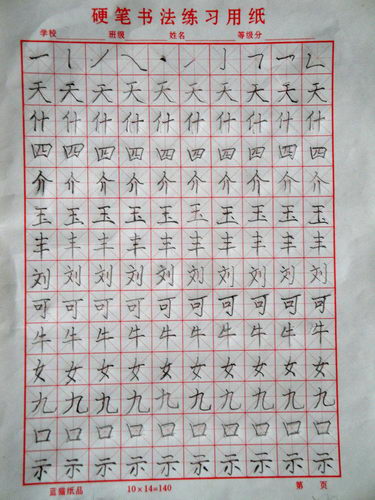 硬笔书法练习用纸
学校 班级 姓名 等级分
一 丨 丿 ㇏ 丶 ㇀ 亅 ㇆ 乛 ㇄
天 天 天 天 天 天 天 天 天 天
什 什 什 什 什 什 什 什 什 什
四 四 四 四 四 四 四 四 四 四
介 介 介 介 介 介 介 介 介 介
玉 玉 玉 玉 玉 玉 玉 玉 玉 玉
丰 丰 丰 丰 丰 丰 丰 丰 丰 丰
刘 刘 刘 刘 刘 刘 刘 刘 刘 刘
可 可 可 可 可 可 可 可 可 可
牛 牛 牛 牛 牛 牛 牛 牛 牛 牛
女 女 女 女 女 女 女 女 女 女
九 九 九 九 九 九 九 九 九 九
口 口 口 口 口 口 口 口 口 口
示 示 示 示 示 示 示 示 示 示
蓝猫纸品 10×14=140 第 页